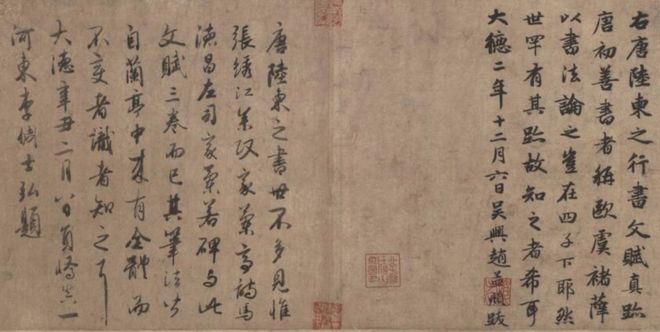 右唐陸柬之行書文賦真跡
唐初善書者稱歐虞褚薛
以書法論之豈在四子下耶然
世罕有其跡故知之者希耳
大德二年十二月六日吳興趙孟頫跋
唐陸柬之書世不多見惟
張繡江參政家藏高詩馬
德昌左司家藏若碑与此
文賦三卷而已其筆法皆
自蘭亭中来有全體而
不變者識者知之耳
大德辛丑二月
河東李倜士弘題